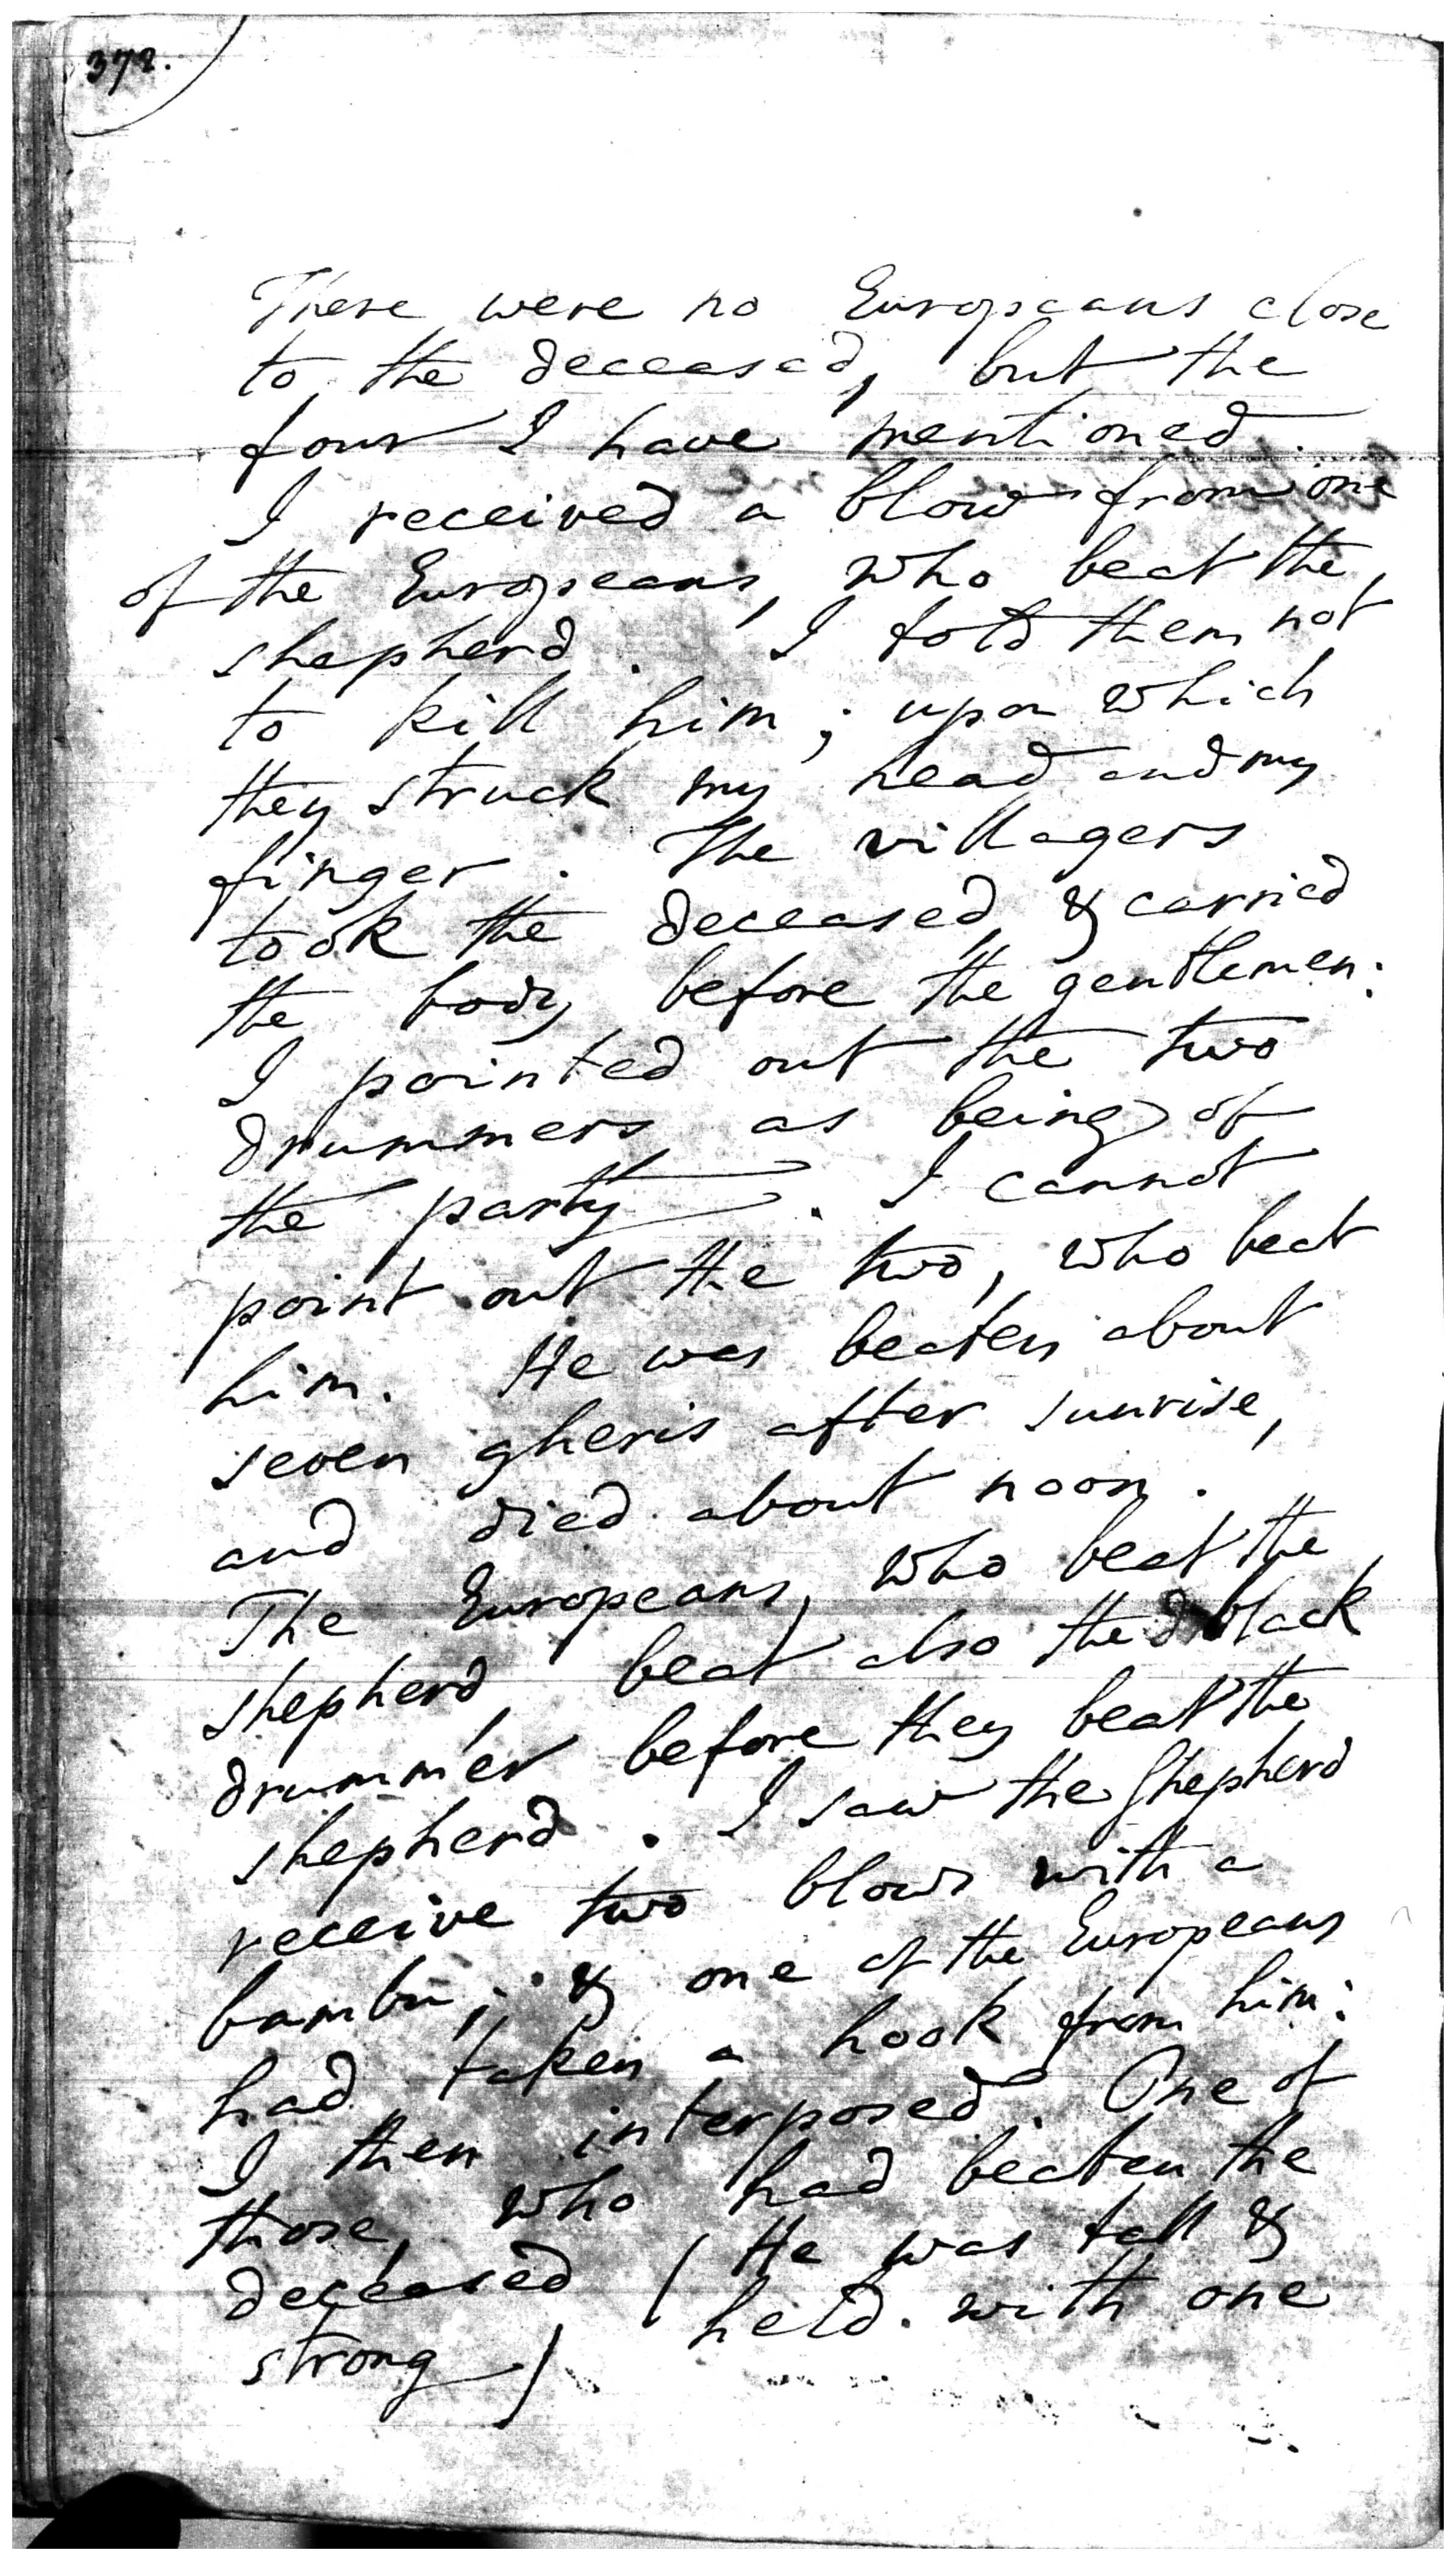 378.
There were no Europeans close
to the deceased, but the
four I have mentioned.
I received a blow from one
of the Europeans, who beat the
shepherd. I told them not
to kill him; upon which
they struck my head and my
finger. The villagers
took the deceased, & carried
the body before the gentlemen:
I pointed out the two
drummers as being of
the party. I cannot
point out the two, who beat
him. He was beaten about
seven gheris after sunrise,
and died about noon.
The Europeans, who beat the
shepherd, beat also the black
drummer before they beat the
shepherd. I saw the Shepherd
receive two blows with a
bambu; & one of the Europeans
had taken a hook from him:
I then interposed. One of
those, who had beaten the
deceased (He was tall &
strong) held with one